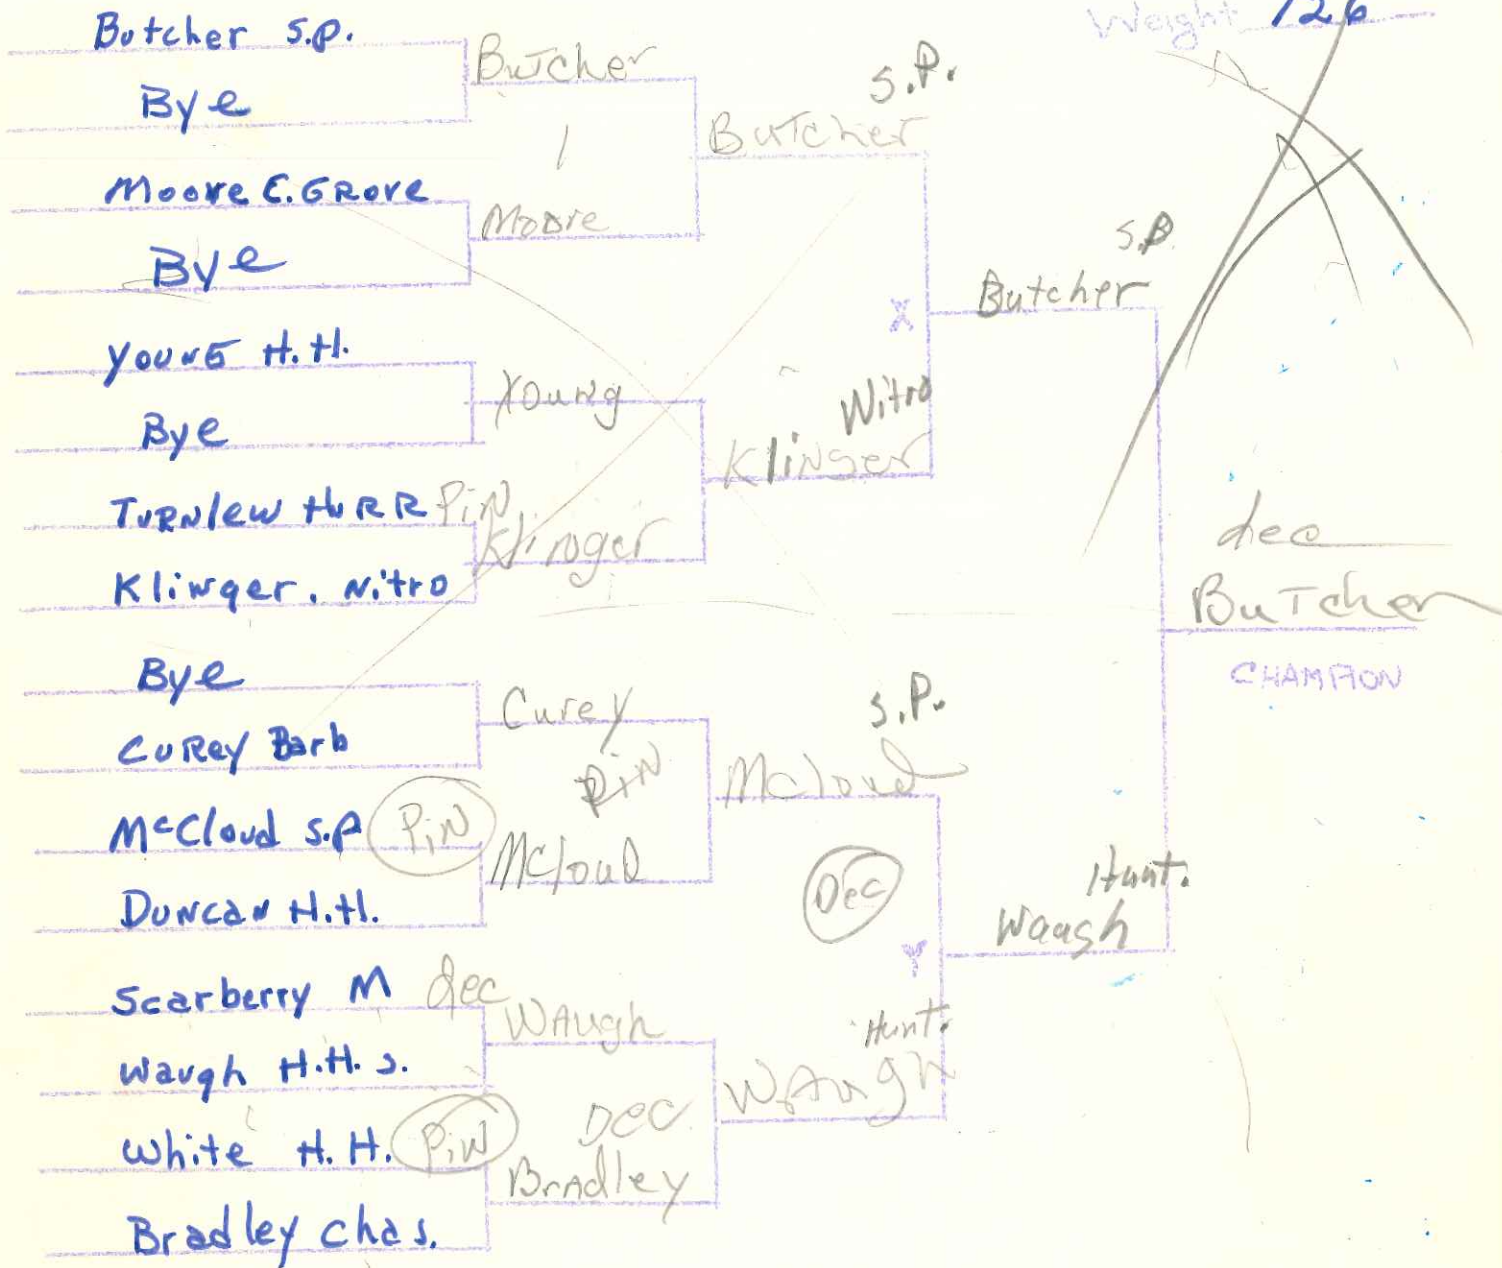 Weight 126
Butcher S.P.
Bye
Moore E. Grove
Bye
Young H.H.
Bye
Turnlew HURR Pin
Klinger. Nitro
Bye
Curey Barb
McCloud S.P. Pin
Duncan H.H.
Scarberry M dec
Waugh H.H.S.
White H.H. Pin
Bradley Chas.
Butcher
1
Moore
Young
Klinger
Curey
Pin
Mcloud
Waugh
Dec
Bradley
S.P.
Butcher
X
Nitro
Klinger
S.P.
Mcloud
Dec
Y
Hunt.
Waugh
S.P.
Butcher
Hunt.
Waugh
dec
Butcher
CHAMPION